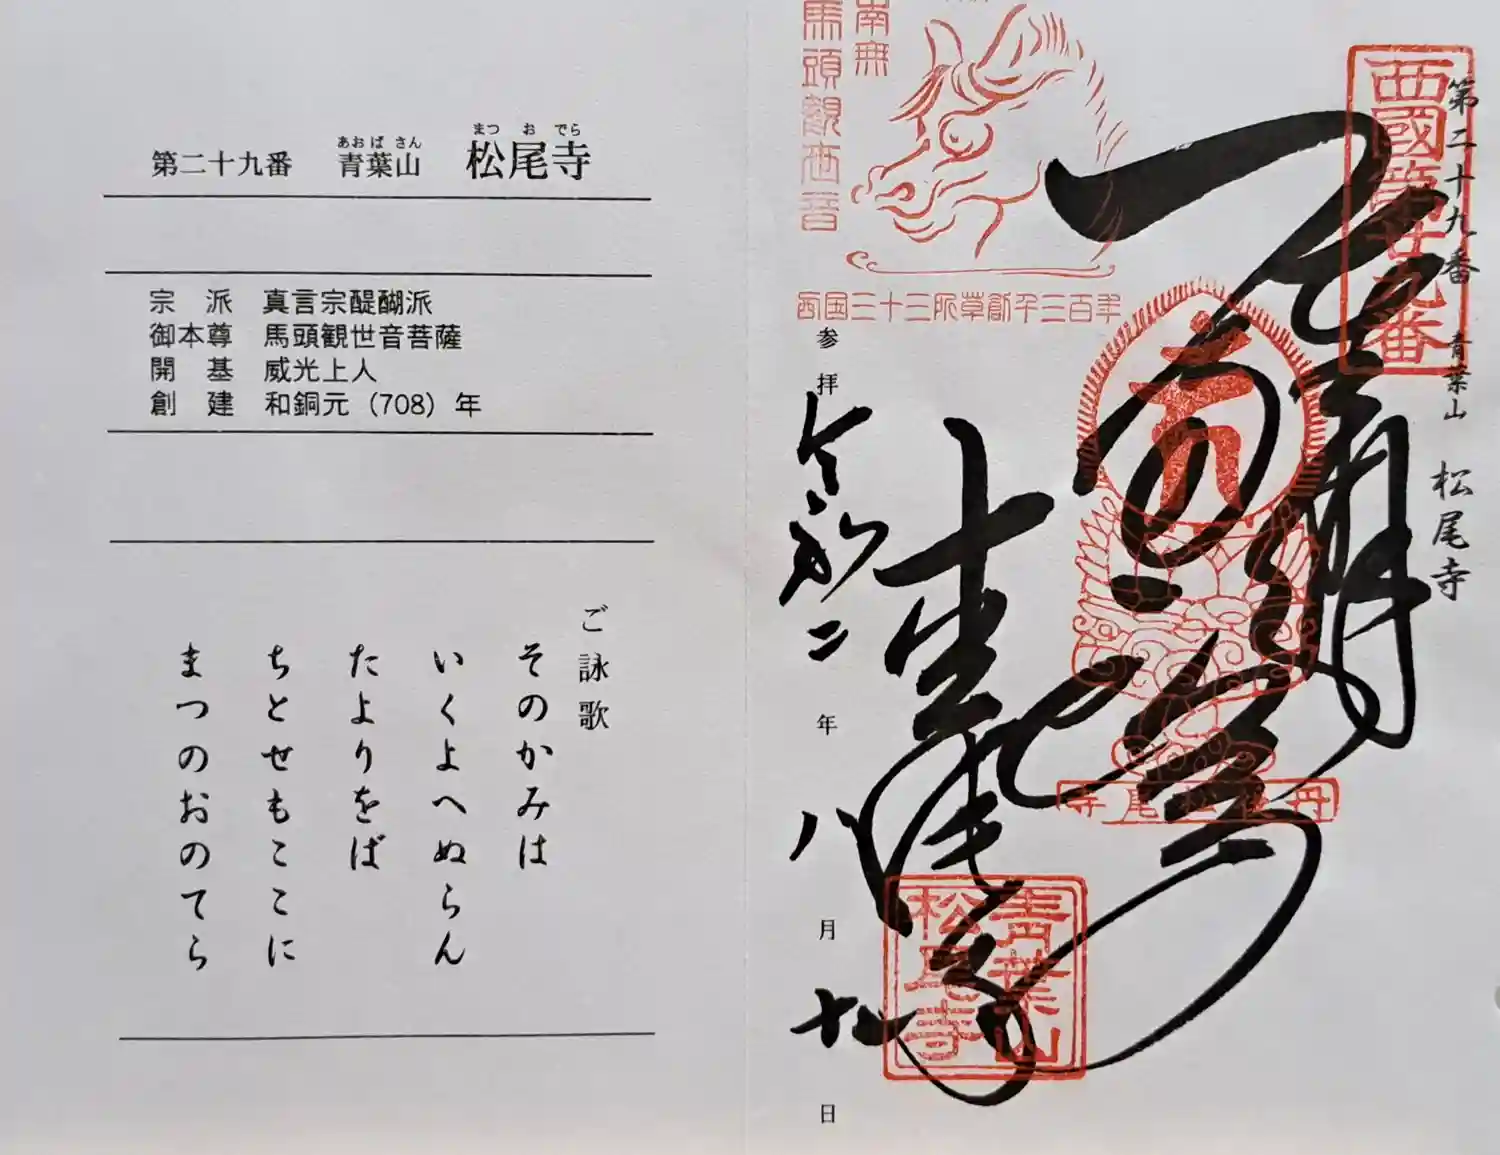 第二十九番 青葉山 松尾寺
あおば さん まつ お でら
宗 派 真言宗醍醐派
御本尊 馬頭観世音菩薩
開 基 威光上人
創 建 和銅元（708）年
ご詠歌
そのかみは
いくよへぬらん
たよりをば
ちとせもここに
まつのおのてら
第二十九番 青葉山 松尾寺
西國第廿九番
南無
馬頭観世音
西国三十三所草創千三百年
丹後松尾寺
青葉山
松尾寺
参拝 令和二年 八月 日